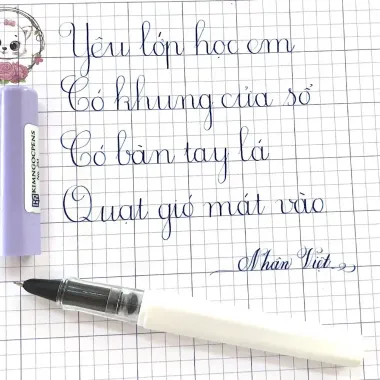 Yêu lớp học em
Có khung cửa sổ
Có bàn tay lá
Quạt gió mát vào
Nhân Việt
KIMNGOCPENS